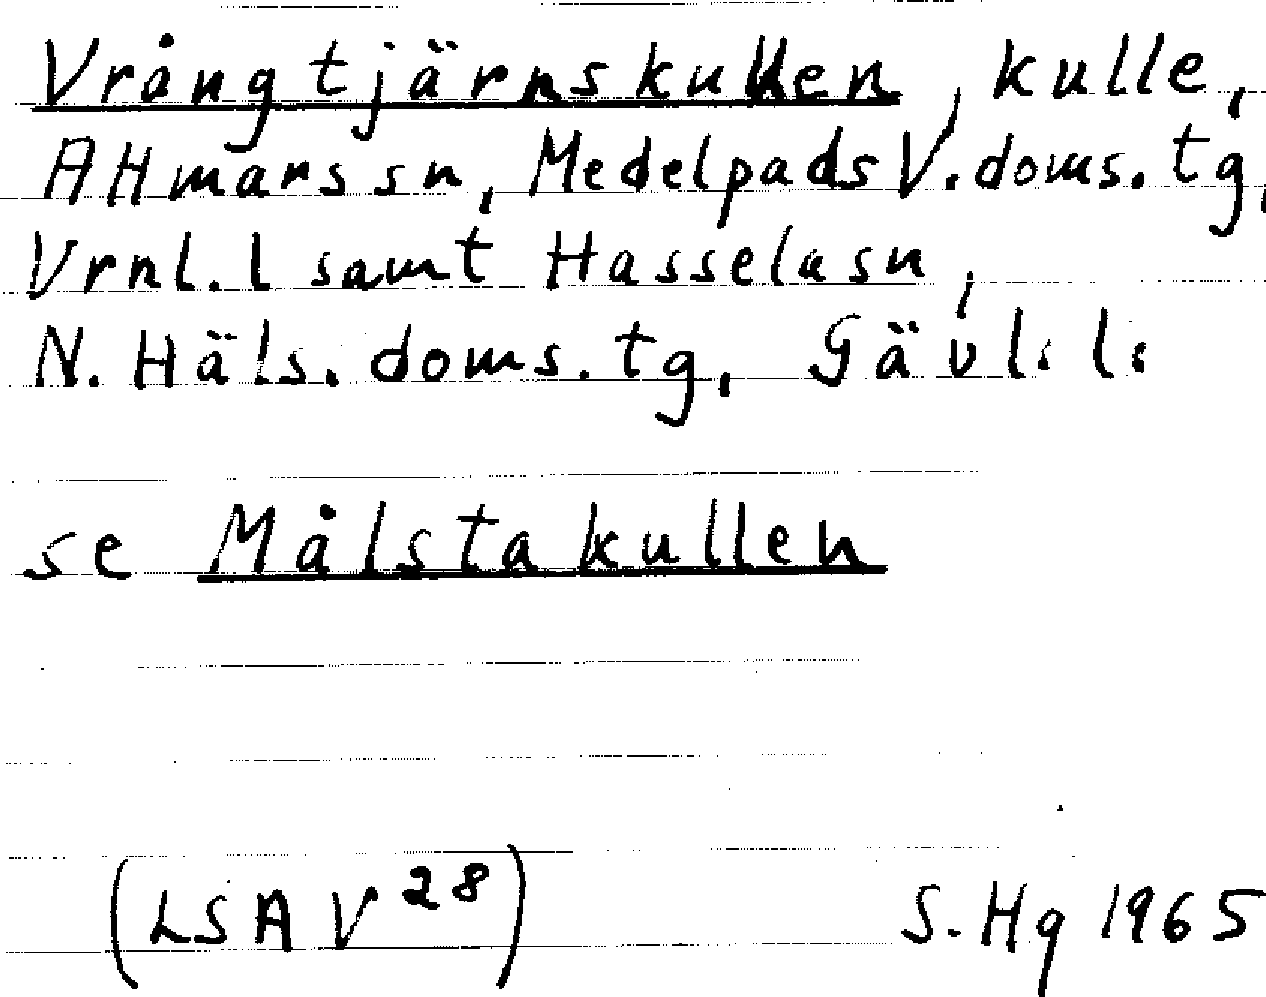 Vrångtjärnskullen, kulle,
Attmars sn, Medelpads V. doms. tg,
Vrnl. l samt Hassela sn,
N. Häls. doms. tg, Gävl. l.
se Målstakullen
(LSA V 28)
S. Hq 1965